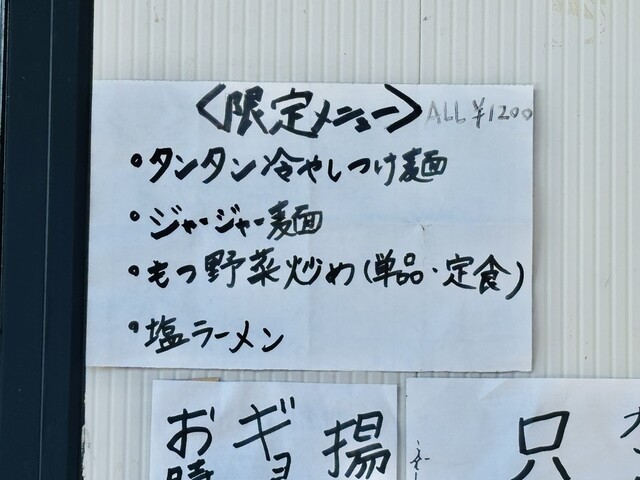 〈限定メニュー〉ALL ¥1200
・タンタン冷やしつけ麺
・ジャージャー麺
・もつ野菜炒め(単品・定食)
・塩ラーメン
揚
ギョ
お
只